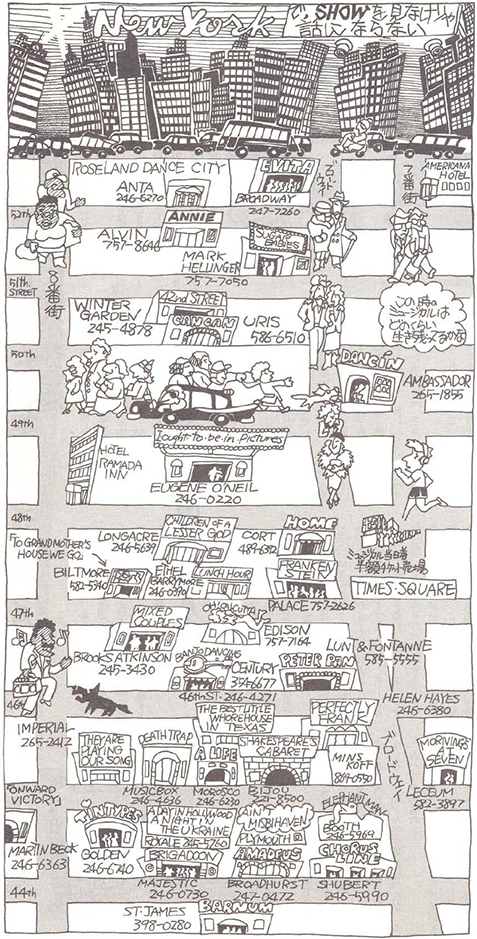 New York
で、SHOWを見なけりゃ
話んならない
ROSELAND DANCE CITY
EVITA
AMERICANA
HOTEL
ANTA
246-6270
BROADWAY
247-7260
7番街
52th
ANNIE
ALVIN
757-8646
SUGAR
BABIES
MARK
HELLINGER
757-7050
51th.
STREET
8番街
この時の
ミュージカルは
WINTER
GARDEN
245-4878
42nd STREET
CAN CAN
URIS
586-6510
50th
DANCIN
AMBASSADOR
265-1855
49th
HOTEL
RAMADA
INN
I ought to be in Pictures
EUGENE O'NEIL
246-0220
48th
"TO GRAND MOTHER'S
HOUSE WE GO"
LONGACRE
246-5639
CHILDREN OF A
LESSER GOD
CORT
489-6392
HOME
BILTMORE
582-5340
ETHEL
BARRYMORE
246-0390
LUNCH HOUR
FRANKEN
STEIN
ミュージカル当日券
半額チケット売場
PALACE 757-2626
TIMES·SQUARE
47th
MIXED
COUPLES
OH! CALCUTTA
EDISON
757-7164
LUNT & FONTANNE
585-5555
BROOKS ATKINSON
245-3430
BANJO DANCING
CENTURY
354-6677
PETER PAN
46th
46th ST. 246-4271
HELEN HAYES
246-6380
IMPERIAL
265-2412
THE BEST LITTLE
WHOREHOUSE
IN TEXAS
PERFECTLY
FRANK
THEY ARE
PLAYING
OUR SONG
DEATH TRAP
A LIFE
SHAKESPEARE'S
CABARET
MINS
KOFF
869-0550
ブロードウェイ
MORNING'S
AT
SEVEN
"ONWARD
VICTORY"
MUSIC BOX
246-4636
MOROSCO
246-6230
BIJOU
221-8500
LYCEUM
582-3897
ELEPHANT MAN
TINTYPES
A DAY IN HOLLYWOOD
A NIGHT IN
THE UKRAINE
AIN'T
MISBIHAVEN
BOOTH
246-5969
MARTIN BECK
246-6363
GOLDEN
246-6740
ROYALE 245-5760
PLYMOUTH
BRIGADOON
AMADEUS
CHORUS
LINE
44th
MAJESTIC
246-0730
BROADHURST
247-0472
SHUBERT
246-5990
ST. JAMES
398-0280
BARNUM